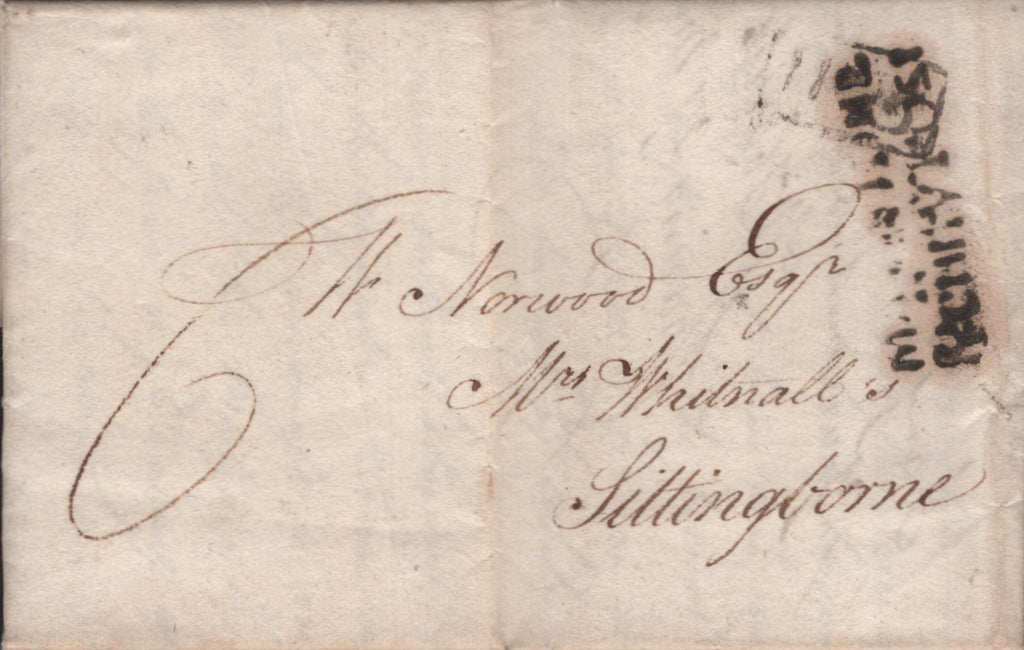 6
W Norwood Esqr
Mrs Whitnall's
Sittingborne
PENNY POST